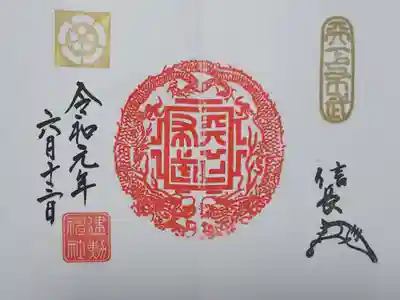 天下布武
信長
天下布武
令和元年
六月十二日
建勲
神社